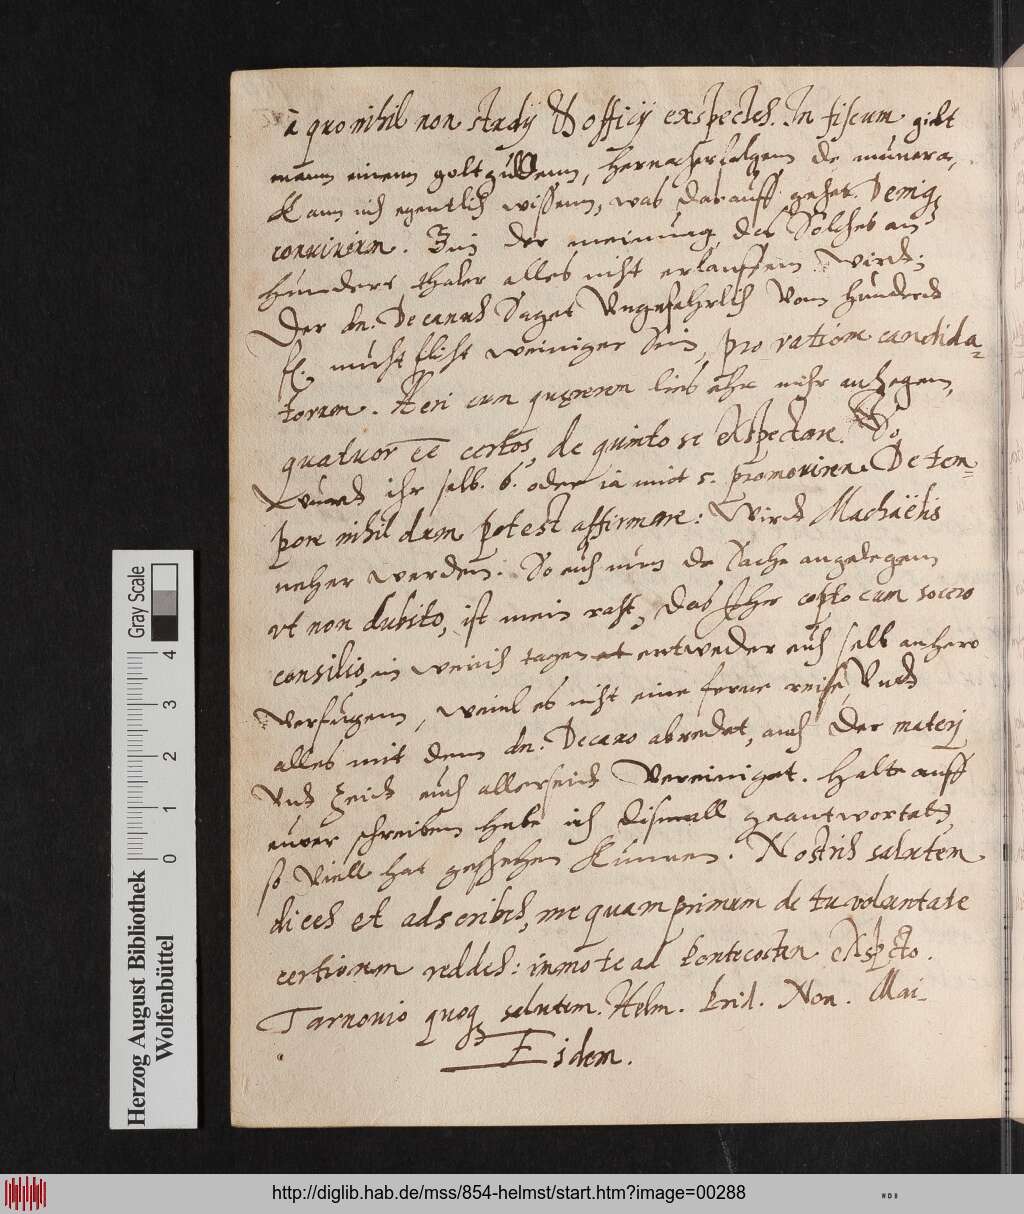 à quo nihil non studij & officij exspectes. In fiscum gibt
mann einenn goltgüldenn, hernacher folgenn de munera,
Kann ich egentlich wissenn, was darauff gehet. Deniq
conuiuium. Bin der meinung das Solches an
hundert thaler alles nicht erlauffenn wirdt;
Der dn. Decanus Saget Ungefahrlich Vom hundert
fl. nicht weiniger Sein, pro ratione candida=
torum. Heri cum quererem lies ehr mihr anzegen,
quatuor ee certos, de quinto se exspectare. So
wurdt ihr selb. 6. oder ia mit 5. promouiren. De tem=
pore nihil dum potest affirmare: Wirdt Machaëlis
neher werden. So euch nun de Sache angelegenn
vt non dubito, ist mein raht, das Ihr cum socero
consilio, in wenich tagen entweder euch selb anhero
verfugenn, weinl es nicht eine ferne reise, Undt
alles mit dem dn. Decano abredet, auch der materj
Undt Zeidt euch allerseidt Vereiniget. Halte auff
euwer schreiben habe ich dismall geantwortet,
so Viell hat geschehen Kunnen. Nostris salutem
dices et adscribes, me quamprimum de tu voluntate
certiorem reddes: immo te ad Pentecosten exspecto.
Tarnouio quoq salutem. Helm. Prid. Non. Mai
Eidem.
Herzog August Bibliothek
Wolfenbüttel
0 1 2 3 4
Gray Scale
http://diglib.hab.de/mss/854-helmst/start.htm?image=00288
WDB